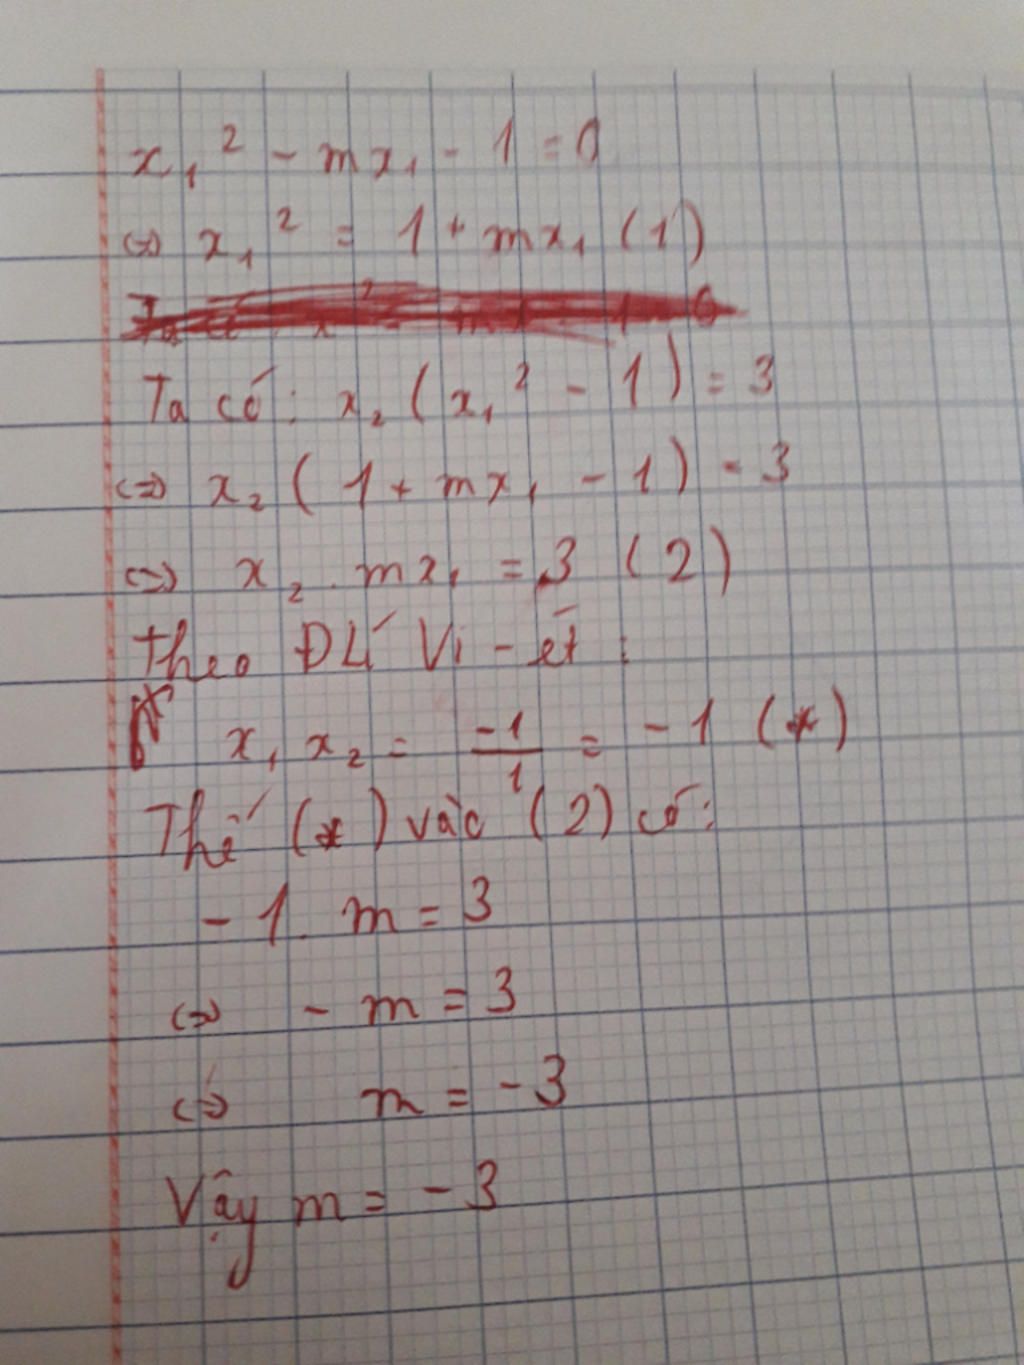 x₁² - mx₁ - 1 = 0
⇔ x₁² = 1 + mx₁ (1)
Ta có: x₂ (x₁² - 1) = 3
⇔ x₂ (1 + mx₁ - 1) = 3
⇔ x₂ . mx₁ = 3 (2)
Theo ĐLí Vi - ét :
x₁ x₂ = -1/1 = -1 (*)
Thế (*) vào (2) có:
-1 . m = 3
⇔ - m = 3
⇔ m = -3
Vậy m = -3